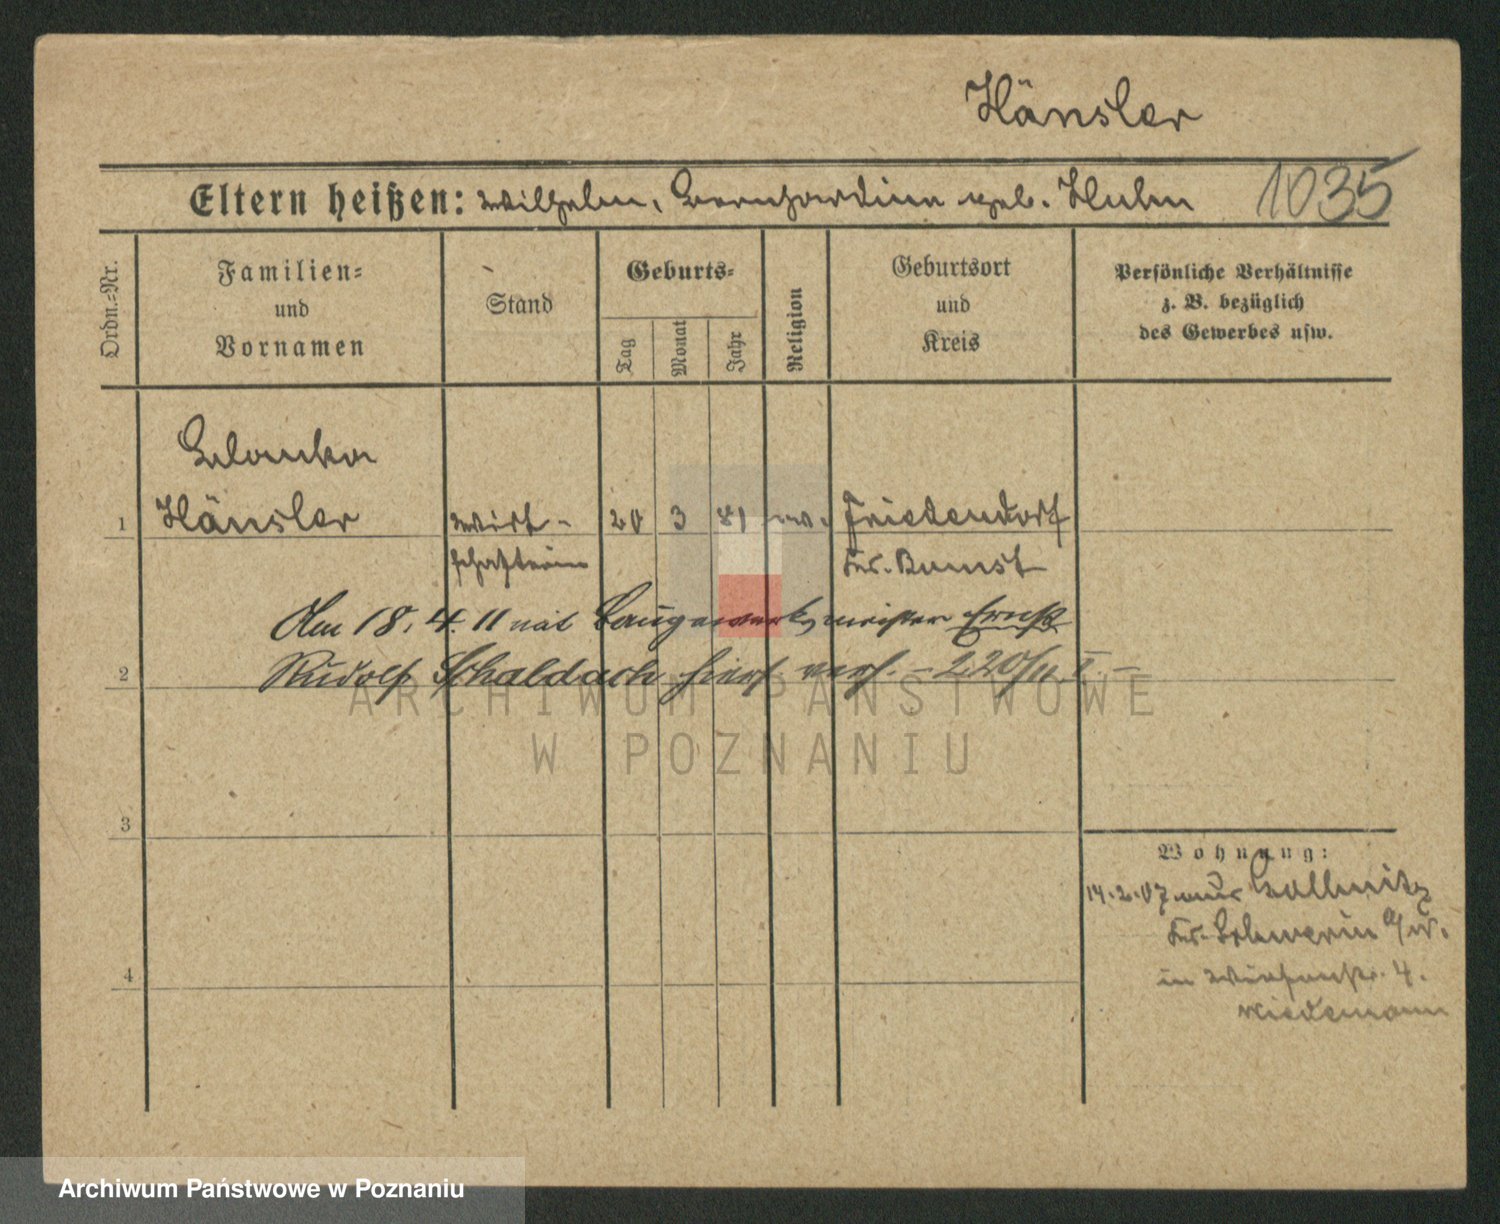 Hänsler
Eltern heißen: Wilhelm, Bernhardine geb. Huhn 1035
Ordn.=Nr.
Familien=
und
Vornamen
Stand
Geburts=
Tag
Monat
Jahr
Religion
Geburtsort
und
Kreis
Persönliche Verhältnisse
z. B. bezüglich
des Gewerbes usw.
Blanka
1 Hänsler Wirt- 20 3 81 ev. Friedendorf
schafterin Kr. Bomst
Am 18. 4. 11 mit Baugewerksmeister Ernst
2 Rudolf Schaldach hier verh. - 220/11 I -
ARCHIWUM PAŃSTWOWE
W POZNANIU
3
Wohnung:
14.2.07 aus Gollmitz
Kr. Schwerin a/W.
4
in 4.
Wiedemann
Archiwum Państwowe w Poznaniu